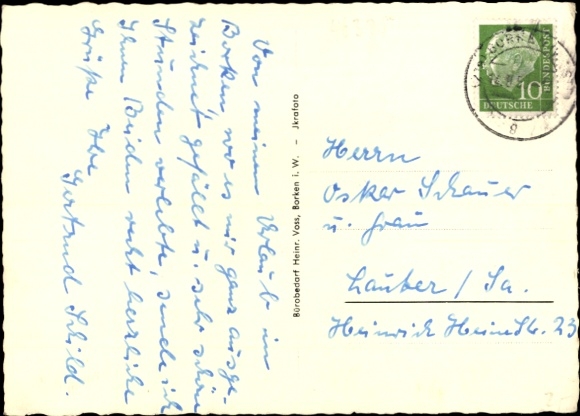 Von meinem Urlaub in
Borken wo es mir ganz ausge-
zeichnet gefällt u. sehr schöne
Stunden verlebte, sende ich
Ihnen Beiden recht herzliche
Grüße Ihre
Gertrud Schild.
Bürobedarf Heinr. Voss, Borken i. W. - Jkrafoto
10
DEUTSCHE
BUNDESPOST
Herrn
Oskar Schauer
u. Frau
Lauter / Sa.
Heinrich Heine Str. 23